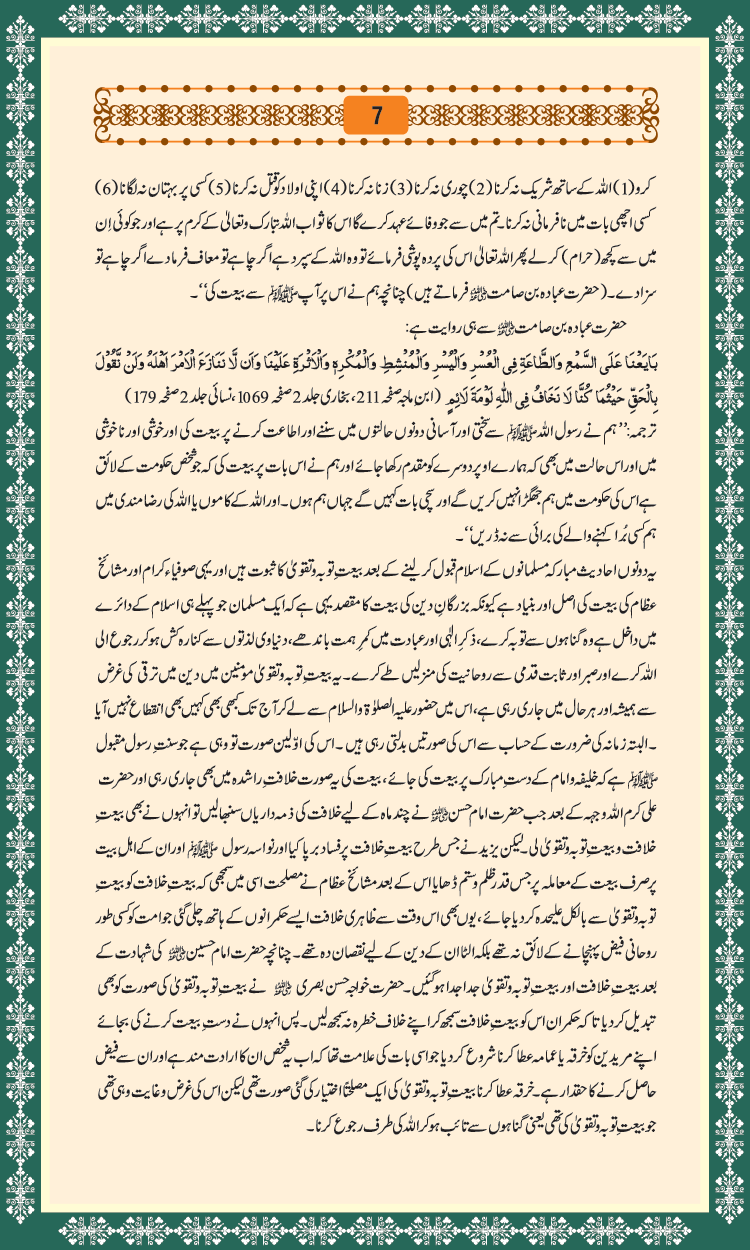 7
کرو(1) اللہ کے ساتھ شریک نہ کرنا (2) چوری نہ کرنا (3) زنا نہ کرنا (4) اپنی اولاد کو قتل نہ کرنا (5) کسی پر بہتان نہ لگانا (6)
کسی اچھی بات میں نافرمانی نہ کرنا۔ تم میں سے جو وفائے عہد کرے گا اس کا ثواب اللہ تبارک وتعالیٰ کے کرم پر ہے اور جو کوئی اِن
میں سے کچھ (حرام) کر لے پھر اللہ تعالیٰ اس کی پردہ پوشی فرمائے تو وہ اللہ کے سپرد ہے اگر چاہے تو معاف فرما دے اگر چاہے تو
سزا دے۔ (حضرت عبادہ بن صامتؓ فرماتے ہیں) چنانچہ ہم نے اس پر آپ ﷺ سے بیعت کی‘‘۔
حضرت عبادہ بن صامتؓ سے ہی روایت ہے:
بَایَعْنَا عَلَی السَّمْعِ وَالطَّاعَۃِ فِی الْعُسْرِ وَالْیُسْرِ وَالْمُنْشِطِ وَالْمُکْرِہِ وَالْاَثْرَۃِ عَلَیْنَا وَاَن لَّا نَنَازَعَ الْاَمْرَ اَھْلَہٗ وَلَنْ نَّقُوْلَ
بِالْحَقِّ حَیْثُمَا کُنَّا لَا نَخَافُ فِی اللّٰہِ لَوْمَۃَ لَائِمٍ (ابن ماجہ صفحہ 211، بخاری جلد 2 صفحہ 1069، نسائی جلد 2 صفحہ 179)
ترجمہ: ’’ہم نے رسول اللہ ﷺ سے سختی اور آسانی دونوں حالتوں میں سننے اور اطاعت کرنے پر بیعت کی اور خوشی اور ناخوشی
میں اور اس حالت میں بھی کہ ہمارے اوپر دوسرے کو مقدم رکھا جائے اور ہم نے اس بات پر بیعت کی کہ جو شخص حکومت کے لائق
ہے اس کی حکومت میں ہم جھگڑا نہیں کریں گے اور سچی بات کہیں گے جہاں ہم ہوں۔ اور اللہ کے کاموں یا اللہ کی رضا مندی میں
ہم کسی بُرا کہنے والے کی برائی سے نہ ڈریں‘‘۔
یہ دونوں احادیث مبارکہ مسلمانوں کے اسلام قبول کر لینے کے بعد بیعتِ توبہ وتقویٰ کا ثبوت ہیں اور یہی صوفیاء کرام اور مشائخ
عظام کی بیعت کی اصل اور بنیاد ہے کیونکہ بزرگانِ دین کی بیعت کا مقصد یہی ہے کہ ایک مسلمان جو پہلے ہی اسلام کے دائرے
میں داخل ہے وہ گناہوں سے توبہ کرے، ذکرِ الٰہی اور عبادت میں کمرِ ہمت باندھے، دنیاوی لذتوں سے کنارہ کش ہو کر رجوع الی
اللہ کرے اور صبر اور ثابت قدمی سے روحانیت کی منزلیں طے کرے۔ یہ بیعتِ توبہ وتقویٰ مومنین میں دین میں ترقی کی غرض
سے ہمیشہ اور ہر حال میں جاری رہی ہے، اس میں حضور علیہ الصلوٰۃ والسلام سے لے کر آج تک کبھی بھی کہیں بھی انقطاع نہیں آیا
۔ البتہ زمانہ کی ضرورت کے حساب سے اس کی صورتیں بدلتی رہی ہیں۔ اس کی اوّلین صورت تو وہی ہے جو سنتِ رسول مقبول
ﷺ ہے کہ خلیفہ وامام کے دستِ مبارک پر بیعت کی جائے، بیعت کی یہ صورت خلافتِ راشدہ میں بھی جاری رہی اور حضرت
علی کرم اللہ وجہہ کے بعد جب حضرت امام حسنؓ نے چند ماہ کے لیے خلافت کی ذمہ داریاں سنبھالیں تو انہوں نے بھی بیعتِ
خلافت و بیعتِ توبہ وتقویٰ لی۔ لیکن یزید نے جس طرح بیعتِ خلافت پر فساد برپا کیا اور نواسہ رسول ﷺ اور ان کے اہل بیت
پر صرف بیعت کے معاملہ پر جس قدر ظلم وستم ڈھایا اس کے بعد مشائخ عظام نے مصلحت اسی میں سمجھی کہ بیعتِ خلافت کو بیعتِ
توبہ وتقویٰ سے بالکل علیحدہ کر دیا جائے، یوں بھی اس وقت سے ظاہری خلافت ایسے حکمرانوں کے ہاتھ چلی گئی جو امت کو کسی طور
روحانی فیض پہنچانے کے لائق نہ تھے بلکہ الٹا ان کے دین کے لیے نقصان دہ تھے۔ چنانچہ حضرت امام حسینؓ کی شہادت کے
بعد بیعتِ خلافت اور بیعتِ توبہ وتقویٰ جدا جدا ہو گئیں۔ حضرت خواجہ حسن بصریؓ نے بیعتِ توبہ وتقویٰ کی صورت کو بھی
تبدیل کر دیا تا کہ حکمران اس کو بیعتِ خلافت سمجھ کر اپنے خلاف خطرہ نہ سمجھ لیں۔ پس انہوں نے دستِ بیعت کرنے کی بجائے
اپنے مریدین کو خرقہ یا عمامہ عطا کرنا شروع کر دیا جو اسی بات کی علامت تھا کہ اب یہ شخص ان کا ارادت مند ہے اور ان سے فیض
حاصل کرنے کا حقدار ہے۔ خرقہ عطا کرنا بیعتِ توبہ وتقویٰ کی ایک مصلحتاً اختیار کی گئی صورت تھی لیکن اس کی غرض وغایت وہی تھی
جو بیعتِ توبہ وتقویٰ کی تھی یعنی گناہوں سے تائب ہو کر اللہ کی طرف رجوع کرنا۔